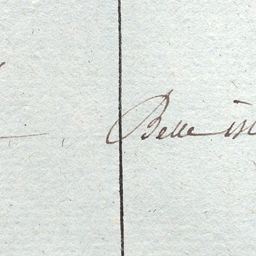 Belle is